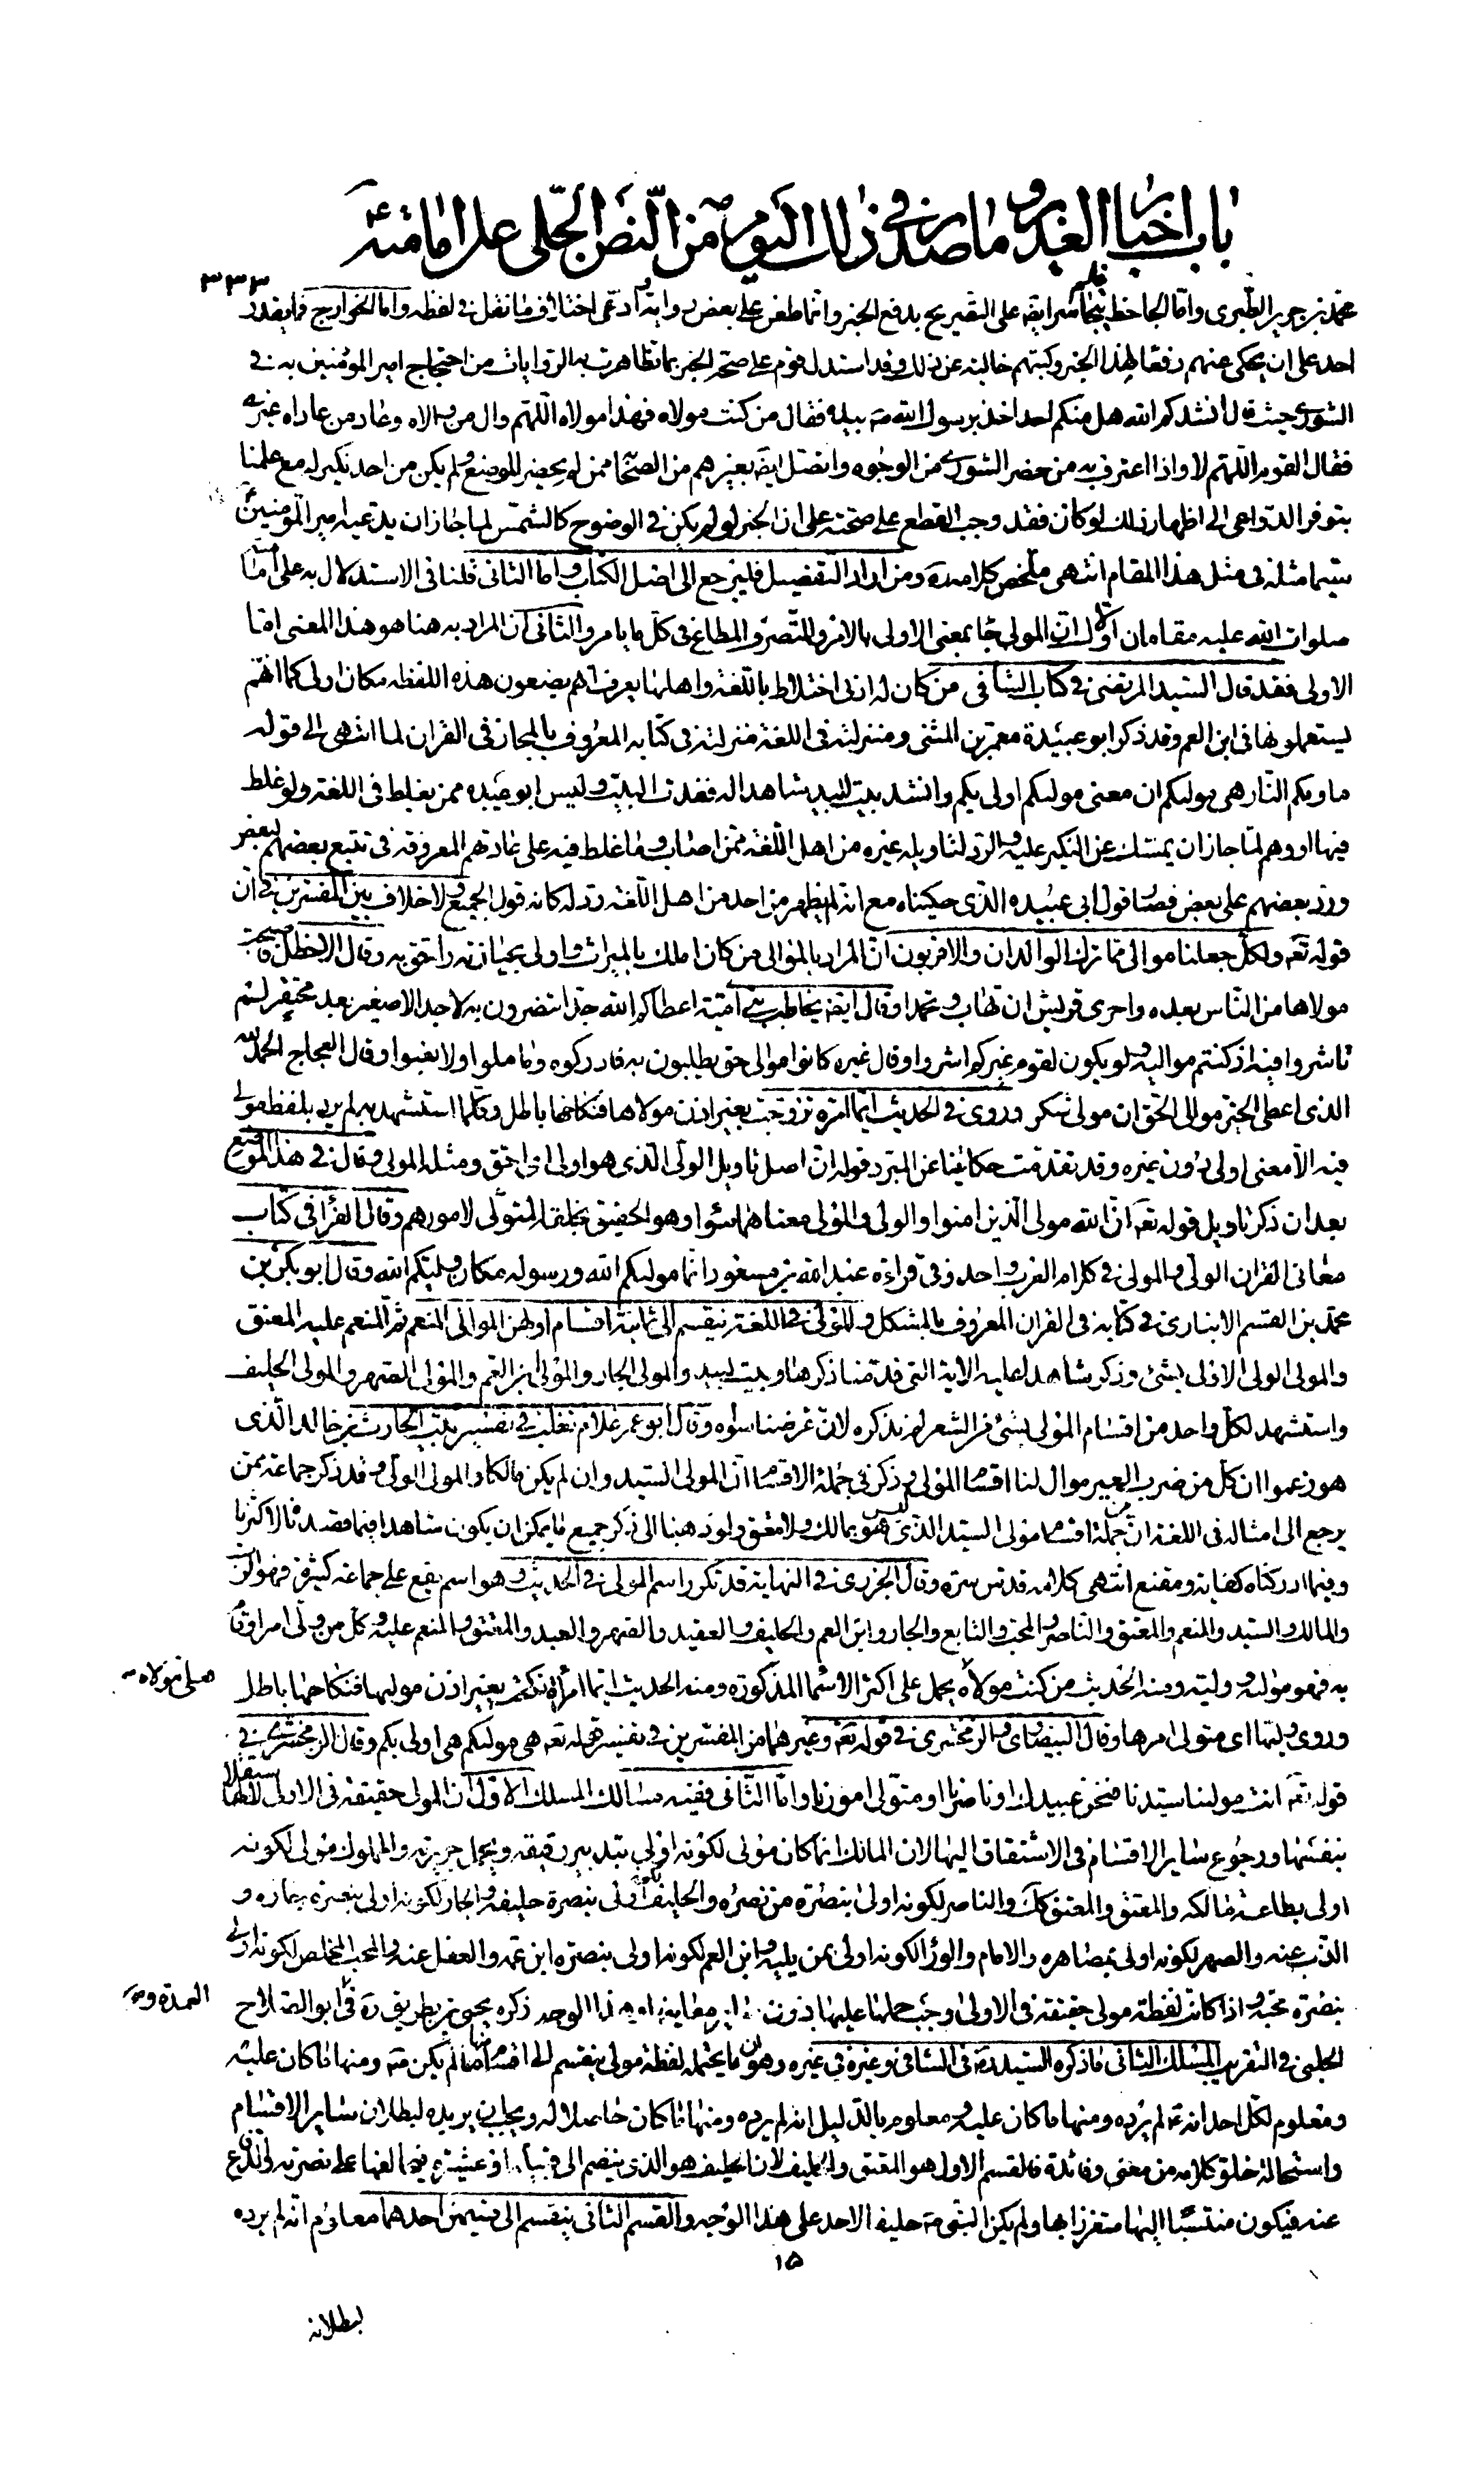 باب اخبار الغدير و ما صدر فى ذلك اليوم من النص الجلى على امامته
٣٣٣
محمد بن جرير الطبرى واما الجاحظ فلم يتجاسر ايضا على التصريح بدفع الخبر وانما طعن على بعض رواية وادعى اختلاف ما نقل فى لفظه واما الخوارج فما يقدر
احد على ان يحكى عنهم دفعا لهذا الخبر وكتبهم خالية عن ذلك وقد استدل قوم على صحة الخبر بما تظاهرت به الروايات من احتجاج امير المؤمنين به فى
الشورى حيث قال انشدكم الله هل منكم احد اخذ رسول الله ص بيده فقال من كنت مولاه فهذا مولاه اللهم وال من والاه وعاد من عاداه غيرى
فقال القوم اللهم لا واذا اعترف به من حضر الشورى من الوجوه واتصل ايضا بغيرهم من الصحابة ممن لم يحضر الموضع ولم يكن من احد نكير له مع علمنا
بتوفر الدواعى الى اظهار ذلك لو كان فقد وجب القطع على صحته على ان الخبر لو لم يكن فى الوضوح كالشمس لما جاز ان يدعيه امير المؤمنين
سيما مثله فى مثل هذا المقام انتهى ملخص كلامه ره ومن اراد التفصيل فليرجع الى اصل الكتاب واما الثانى فلنا فى الاستدلال به على امامته
صلوات الله عليه مقامان الاول ان المولى جاء بمعنى الاولى بالامر والمتصرف المطاع فى كل ما يامر والثانى ان المراد به هنا هو هذا المعنى اما
الاولى فقد قال السيد المرتضى فى كتاب الشافى من كان له ادنى اختلاط باللغة واهلها يعرف انهم يضعون هذه اللفظة مكان اولى كما انهم
يستعملونها فى ابن العم وقد ذكر ابو عبيدة معمر بن المثنى ومنزلته فى اللغة منزلته فى كتابه المعروف بالمجاز فى القران لما انتهى الى قوله
ماويكم النار هى موليكم ان معنى موليكم اولى بكم وانشد بيت لبيد شاهدا له فغدت البيت وليس ابو عبيده ممن يغلط فى اللغة ولو غلط
فيها او وهم لما جاز ان يمسك عن النكير عليه والرد لتاويله غيره من اهل اللغة ممن اصاب وما غلط فيه على عادتهم المعروفة فى تتبع بعضهم لبعض
ورد بعضهم على بعض فصار قول ابى عبيده الذى حكيناه مع انه لم يظهر من احد من اهل اللغة رد له كانه قول الجميع ولا خلاف بين المفسرين فى ان
قوله تعه ولكل جعلنا موالى مما ترك الوالدان والاقربون ان المراد بالموالى من كان املك بالميراث واولى بحيازته واحق به وقال الاخطل فاصبحت
مولاها من الناس بعده واحرى قريش ان تهاب وتحمدا وقال ايضا يخاطب بنى امية اعطاكم الله جدا تنصرون به لا جد الا صغير بعد محتقر لم
تاشروا فيه اذ كنتم مواليه ولو يكون لقوم غيركم اشروا وقال غيره كانوا موالى حق يطلبون به فادركوه وما ملوا ولا لغبوا وقال العجاج الحمد لله
الذى اعطى الخير موالى الحق ان مولى شكر وروى فى الحديث ايما امرءة تزوجت بغير اذن مولاها فنكاحها باطل وكلما استشهد به لم يرد بلفظ مولى
فيه الا معنى اولى دون غيره وقد تقدمت حكايتنا عن المبرد قوله ان اصل تاويل الولى الذى هو اولى اى احق ومثله المولى وقال فى هذا الموضع
بعد ان ذكر تاويل قوله تعه ان الله مولى الذين امنوا والولى والمولى معناهما سواء وهو الحقيق بخلقه المتولى لامورهم وقال الفراء فى كتاب
معانى القران الولى والمولى فى كلام العرب واحد وفى قراءة عبد الله بن مسعود انما موليكم الله ورسوله مكان وليكم الله وقال ابو بكر بن
محمد بن القسم الانبارى فى كتابه فى القران المعروف بالمشكل والمولى فى اللغة ينقسم الى ثمانية اقسام اولهن المولى المنعم ثم المنعم عليه المعتق
والمولى الولى الاولى بشئ وذكر شاهدا عليه الاية التى قدمنا ذكرها وبيت لبيد والمولى الجار والمولى ابن العم والمولى الصهر والمولى الحليف
واستشهد لكل واحد من اقسام المولى بشئ من الشعر لم نذكره لان غرضنا سواه وقال ابو عمر غلام ثعلب فى تفسير بيت الحارث بن حلزه الذى
هو زعموا ان كل من ضرب العير موال لنا اقسام المولى وذكر فى جملة الاقسام ان المولى السيد وان لم يكن مالكا والمولى الولى وقد ذكر جماعة ممن
يرجع الى امثاله فى اللغة ان من جملة اقسام مولى السيد الذى ليس هو بمالك ولا معتق ولو ذهبنا الى ذكر جميع ما يمكن ان يكون شاهدا فيما قصدناه لاكثرنا
وفيما ادركناه كفاية ومقنع انتهى كلامه قدس سره وقال الجزرى فى النهاية قد تكرر اسم المولى فى الحديث وهو اسم يقع على جماعة كثيرة فهو الرب
والمالك والسيد والمنعم والمعتق والناصر والمحب والتابع والجار وابن العم والحليف والعقيد والصهر والعبد والمعتق والمنعم عليه وكل من ولى امرا وقام
به فهو موليه ووليه ومنه الحديث من كنت مولاه يحمل على اكثر الاسماء المذكورة ومنه الحديث ايما امرأة نكحت بغير اذن موليها فنكاحها باطل
فعلى مولاه
وروى وليها اى متولى امرها وقال البيضاوى والزمخشرى فى قوله تعه وغيرهما من المفسرين فى تفسير قوله تعه هى موليكم هى اولى بكم وقال الزمخشرى فى
قوله تعه انت مولينا سيدنا فنحن عبيدك او ناصرنا او متولى امورنا واما الثانى ففيه مسالك المسلك الاول ان المولى حقيقة فى الاولى لاستقلالها
بنفسها ورجوع ساير الاقسام فى الاشتقاق اليها لان المالك انما كان مولى لكونه اولى بتدبير رقيقه وبحمل جريرته والمملوك مولى لكونه
اولى بطاعة مالكه والمعتق والمعتق كك والناصر لكونه اولى بنصرة من نصره والحليف لكونه اولى بنصرة حليفه والجار لكونه اولى بنصرة جاره و
الذب عنه والصهر لكونه اولى بمصاهره والامام والوراء لكونه اولى بمن يليه وابن العم لكونه اولى بنصرة ابن عمه والعقل عنه والمحب المخلص لكونه اولى
بنصرة محبه واذا كانت لفظة مولى حقيقة فى الاولى وجب حملها عليها دون ساير معانيها وهذا الوجه ذكره يحيى بن بطريق ره فى ابو الصلاح
العمدة و
الحلبى فى التقريب المسلك الثانى ما ذكره السيد ره فى الشافى وغيره فى غيره وهو ان ما يحتمله لفظة مولى ينقسم الى اقسام منها ما لم يكن ص ومنها ما كان عليه
ومعلوم لكل احد انه ص لم يرده ومنها ما كان عليه ومعلوم بالدليل انه لم يرده ومنها ما كان حاصلا له ويجب ان يريده لبطلان ساير الاقسام
واستحالة خلو كلامه من معنى وفائدة فالقسم الاول هو المعتق والحليف لان الحليف هو الذى ينضم الى قبيلة او عشيرة فيحالفها على نصرته والدفاع
عنه فيكون منتسبا اليها متعززا بها ولم يكن النبى ص حليفا لاحد على هذا الوجه والقسم الثانى ينقسم الى قسمين احدهما معلوم انه لم يرده
١٥
لبطلانه